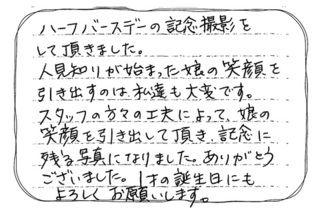 ハーフバースデーの記念撮影を
して頂きました。
人見知りが始まった娘の笑顔を
引き出すのは私達も大変です。
スタッフの方々の工夫によって、娘の
笑顔を引き出して頂き、記念に
残る写真になりました。ありがとう
ございました。1才の誕生日にも
よろしくお願いします。